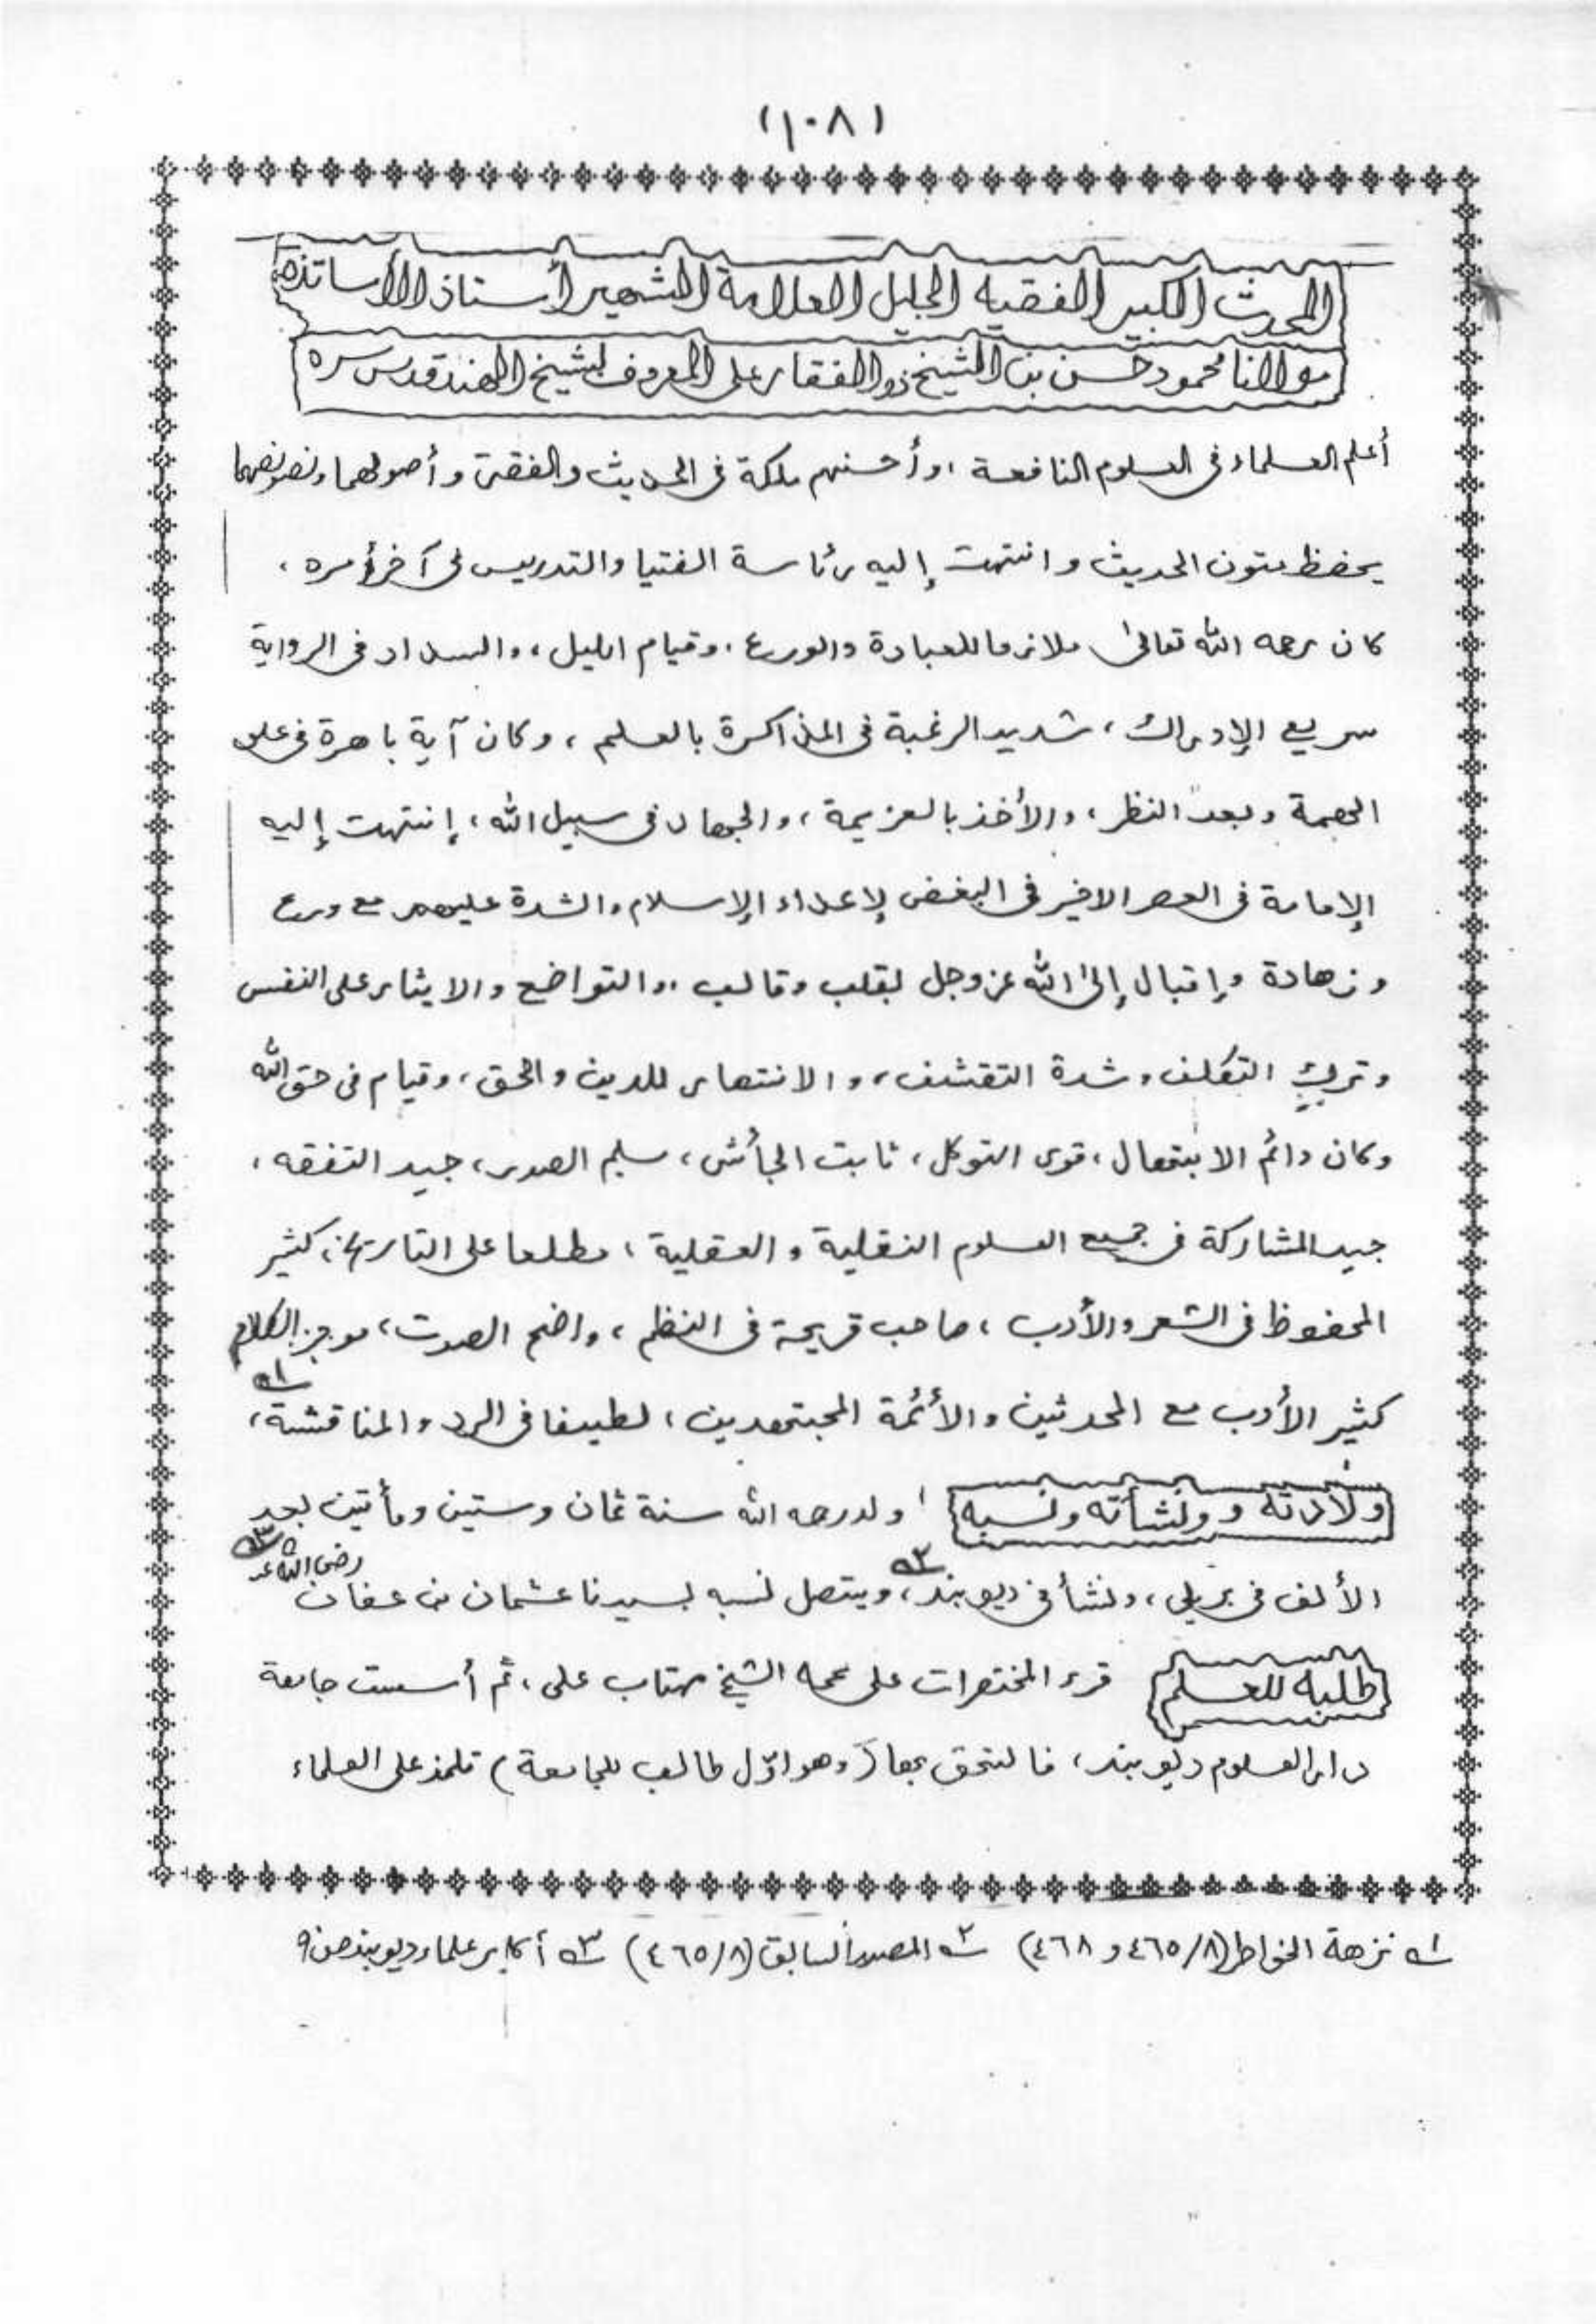 (١٠٨)
المحدث الكبير الفقيه الجليل العلامة الشهير أستاذ الأساتذة
مولانا محمود حسن بن الشيخ ذوالفقار على المعروف بشيخ الهند قدس سره
أعلم العلماء فى العلوم النافعة ، وأحسنهم ملكة فى الحديث والفقه وأصولهما ونصوصهما
يحفظ متون الحديث وانتهت إليه رئاسة الفتيا والتدريس فى آخر أمره ،
كان رحمه الله تعالىٰ ملازما للعبادة والورع ، وقيام الليل ، والسداد فى الرواية
سريع الإدراك ، شديد الرغبة فى المذاكرة بالعلم ، وكان آية باهرة فى علو
الهمة وبعد النظر ، والأخذ بالعزيمة ، والجهاد فى سبيل الله ، إنتهت إليه
الإمامة فى العصر الاخير فى البغض لإعداء الإسلام والشدة عليهم مع ورع
وزهادة وإقبال إلىٰ الله عزوجل بقلب وقالب ،، والتواضع والايثار على النفس
وترك التكلف وشدة التقشف ، والانتصار للدين والحق ، وقيام فى حق الله
وكان دائم الابتهال ، قوى التوكل ، ثابت الجأش ، سليم الصدر ، جيد التفقه ،
جيد المشاركة فى جميع العلوم النقلية والعقلية ، مطلعا على التاريخ ، كثير
المحفوظ فى الشعر والأدب ، صاحب قريحة فى النظم ، واضح الصوت ، موجز الكلام
كثير الأدب مع المحدثين والأئمة المجتهدين ، لطيفا فى الرد والمناقشة ، ١ه
ولادته وونشأته ونسبه ولد رحمه الله سنة ثمان وستين ومأتين بعد
الألف فى بريلى ، ونشأ فى ديوبند ، ٢ه ويتصل نسبه بسيدنا عثمان بن عفان رضى الله عنه ٣ه
طلبه للعلم قرء المختصرات على عمه الشيخ مهتاب على ، ثم أسست جامعة
دار العلوم ديوبند ، فالتحق بها (وهو اوّل طالب للجامعة) تلمذ على العلماء
١ه نزهة الخواطر (٤٦٥/٨ و ٤٦٨) ٢ه المصدر السابق (٤٦٥/٨) ٣ه أكابر علماء ديوبند ص ٩